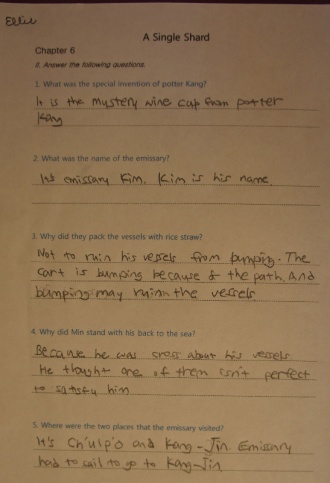 Ellie
A Single Shard
Chapter 6
II. Answer the following questions.
1. What was the special invention of potter Kang?
It is the mystery wine cup from potter
Kang
2. What was the name of the emissary?
It's emissary Kim. Kim is his name.
3. Why did they pack the vessels with rice straw?
Not to ruin his vessels from bumping. The
cart is bumping because of the path. And
bumping may ruin the vessels
4. Why did Min stand with his back to the sea?
Because he was cross about his vessels.
He thought one of them isn't perfect
to satisfy him
5. Where were the two places that the emissary visited?
It's Ch'ulp'o and Kang-Jin. Emissary
had to sail to go to Kang-Jin.